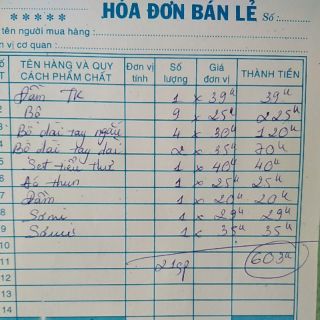 ★★★★★ HÓA ĐƠN BÁN LẺ Số:
tên người mua hàng:
n vị cơ quan:
TÊN HÀNG VÀ QUY CÁCH PHẨM CHẤT Đơn vị tính Số lượng Giá đơn vị THÀNH TIỀN
Đầm TK 1 x 39k 39k
2 Bộ 9 x 25k 225k
3 Bộ dài tay ngắn 4 x 30k 120k
4 Bộ dài tay dài 2 x 35k 70k
5 Set tiểu thư 1 x 40k 40k
6 Áo thun 1 x 25k 25k
7 Đầm 1 x 20k 20k
8 Sơmi 1 x 29k 29k
9 Sơmi 1 x 35k 35k
10 603k
11 21sp
12
13
14